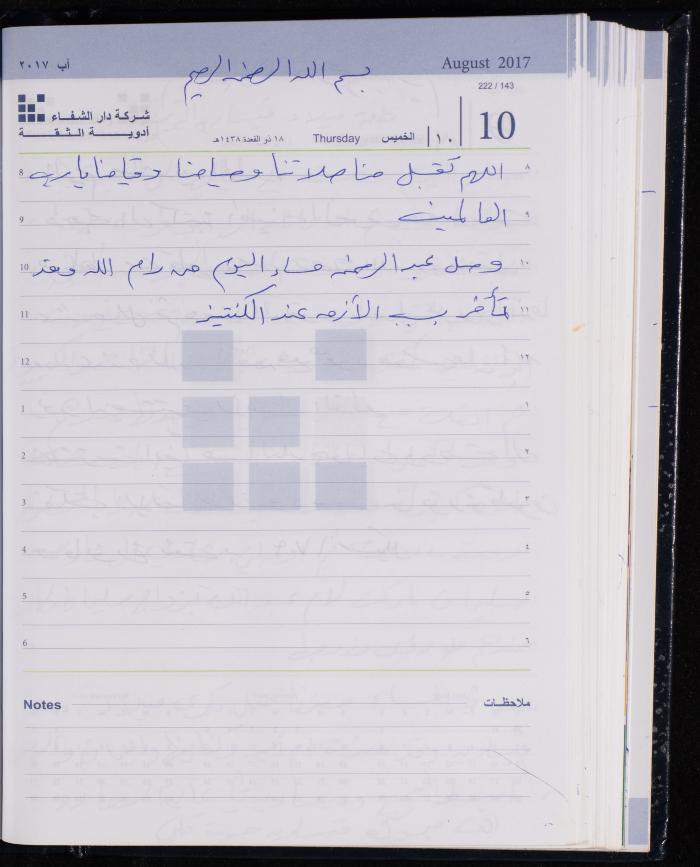 آب ٢٠١٧
August 2017
بسم الله الرحمن الرحيم
222 / 143
شركة دار الشفاء
أدوية الثقة
١٨ ذو القعدة ١٤٣٨هـ
Thursday
الخميس
١٠
10
8 اللهم تقبل منا صلاتنا وصيامنا وقيامنا يا رب ٨
9 العالمين ٩
10 وصل عبد الرحمن مساء اليوم من رام الله وقد ١٠
11 تأخر بسبب الأزمه عند الكنتينر ١١
12 ١٢
1 ١
2 ٢
3 ٣
4 ٤
5 ٥
6 ٦
Notes ملاحظات